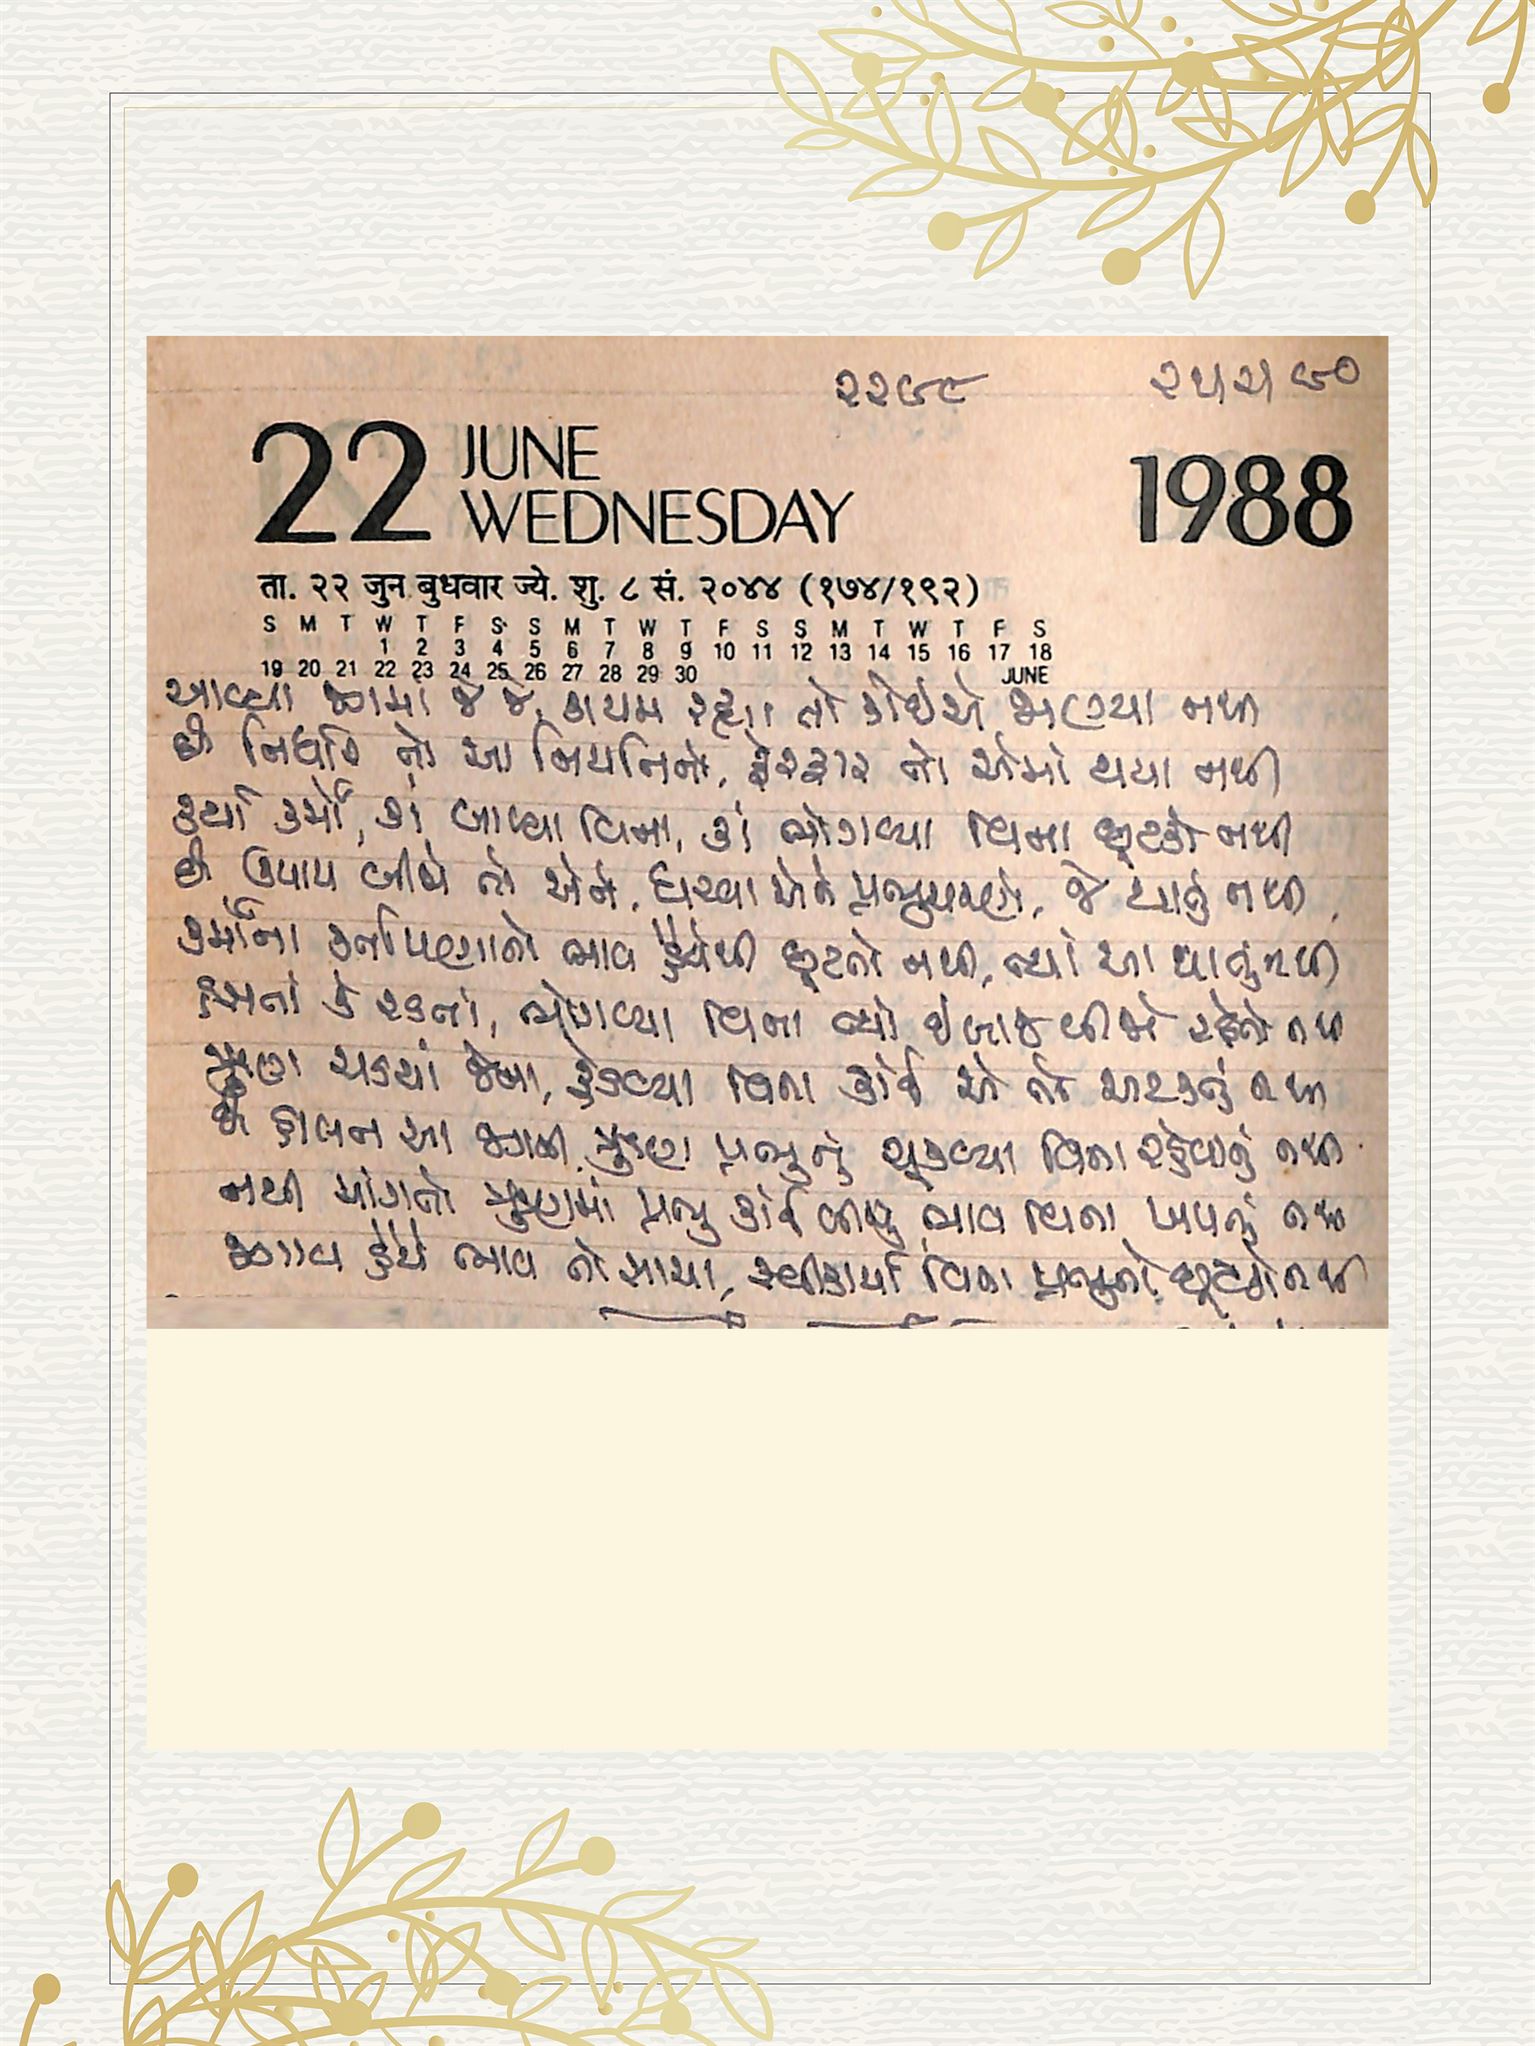 ૨૨૭૯
22 JUNE WEDNESDAY 1988
ता. २२ जुन बुधवार ज्ये. शु. ८ सं. २०४४ (१७४/१९२)
S M T W T F S S M T W T F S S M T W T F S
1 2 3 4 5 6 7 8 9 10 11 12 13 14 15 16 17 18
19 20 21 22 23 24 25 26 27 28 29 30 JUNE
આવ્યા જગમાં જે જે, કાયમ રહ્યા તો કોઈએ જાણ્યા નથી
છે નિર્ધારિત તો આ નિયતિનો, ફેરફાર તો એમાં થયા નથી
કર્યા કર્મો, કાં બાળ્યા વિના, કાં ભોગવ્યા વિના છૂટકો નથી
છે ઉપાય બીજો તો એને, ધરવા એને પ્રભુચરણે, જે થાતું નથી
કર્મોના કર્તાપણાનો ભાવ હૈયેથી છૂટતો નથી, ત્યાં આ થાતું નથી
હસતાં કે રડતાં, ભોગવ્યા વિના ત્યાં ઇલાજ બીજો રહેતો નથી
ઋણ ચડયાં જેના, ફેડવ્યા વિના કાંઈ એ તો અટકતું નથી
આ જગથી, ઋણ પ્રભુનું ચૂકવ્યા વિના રહેવાનું નથી
નથી માંગતો ઋણમાં પ્રભુ કાંઈ બીજું ભાવ વિના ખપતું નથી
જગાવ હૈયે ભાવ તો સાચા, સ્વીકાર્યા વિના પ્રભુનો છૂટકો નથી